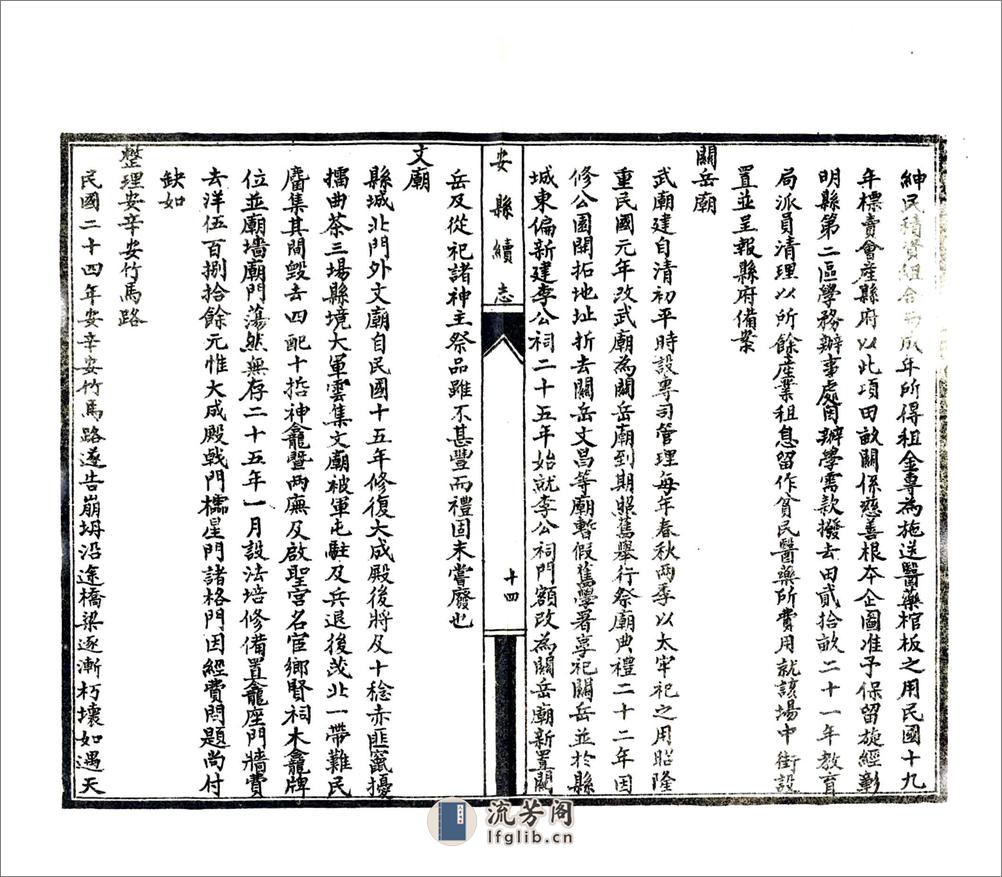 紳民積資組合而成年所得租金專為施送醫藥棺板之用民國十九
年標賣會產縣府以此項田畝關係慈善根本企圖准予保留旋經彰
明縣第二區學務辦事處因辦學需款撥去田貳拾畝二十一年教育
局派員清理以所餘產業租息留作貧民醫藥所費用就該場中街設
置並呈報縣府備案
關岳廟
武廟建自清初平時設專司管理每年春秋兩季以太牢祀之用昭隆
重民國元年改武廟為關岳廟到期照舊舉行祭廟典禮二十二年因
修公園開拓地址折去關岳文昌等廟暫假舊學署享祀關岳並於縣
城東偏新建李公祠二十五年始就李公祠門額改為關岳廟新置關
安縣續志
十四
岳及從祀諸神主祭品雖不甚豐而禮固未嘗廢也
文廟
縣城北門外文廟自民國十五年修復大成殿後將及十稔赤匪竄擾
擂曲茶三場縣境大軍雲集文廟被軍屯駐及兵退後茂北一帶難民
麕集其間毀去四配十哲神龕暨兩廡及啟聖宮名宦鄉賢祠木龕牌
位並廟墻廟門蕩然無存二十五年一月設法培修備置龕座門牆費
去洋伍百捌拾餘元惟大成殿戟門櫺星門諸格門因經費問題尚付
缺如
整理安辛安竹馬路
民國二十四年安辛安竹馬路遂告崩坍沿途橋梁逐漸朽壞如遇天
流芳阁
lfglib.cn